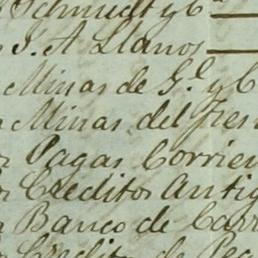 Schmidt y Cª
J. A. Llanos
Minas de G.l y C
Minas del Fres
Pagas Corrien
Creditos Antig
Banco de Carr
Credito de Pec